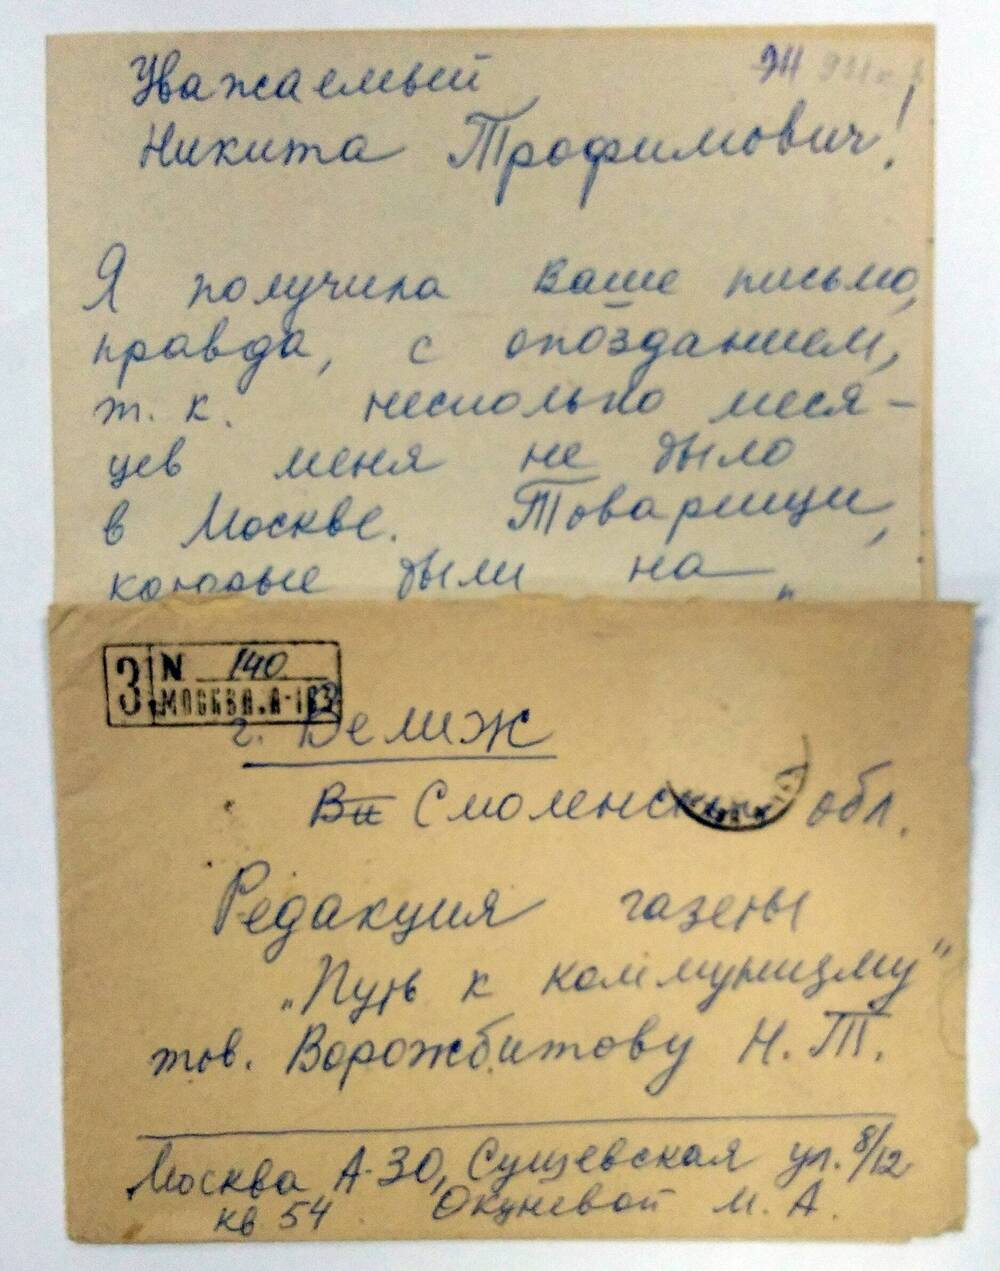 Уважаемый
Никита Трофимович!
Я получила Ваше письмо,
правда, с опозданием,
т. к. несколько меся-
цев меня не было
в Москве. Товарищи,
которые были на
З N 140
МОСКВА.А-183
г. Велиж
Смоленск обл.
Редакция газеты
"Путь к коммунизму"
тов. Ворожбитову Н. Т.
Москва А-30, Сущевская ул. 8/12
кв 54 Окуневой М. А.